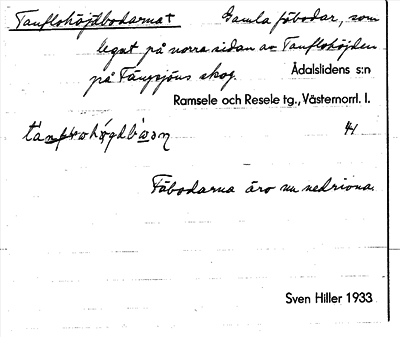 Tanflohöjdbodarna + Gamla fäbodar, som
legat på norra sidan av Tanflohöjden
på Tängsjöns skog. Ådalslidens s:n
Ramsele och Resele tg., Västernorrl. l.
41
Fäbodarna äro nu nedrivna.
Sven Hiller 1933